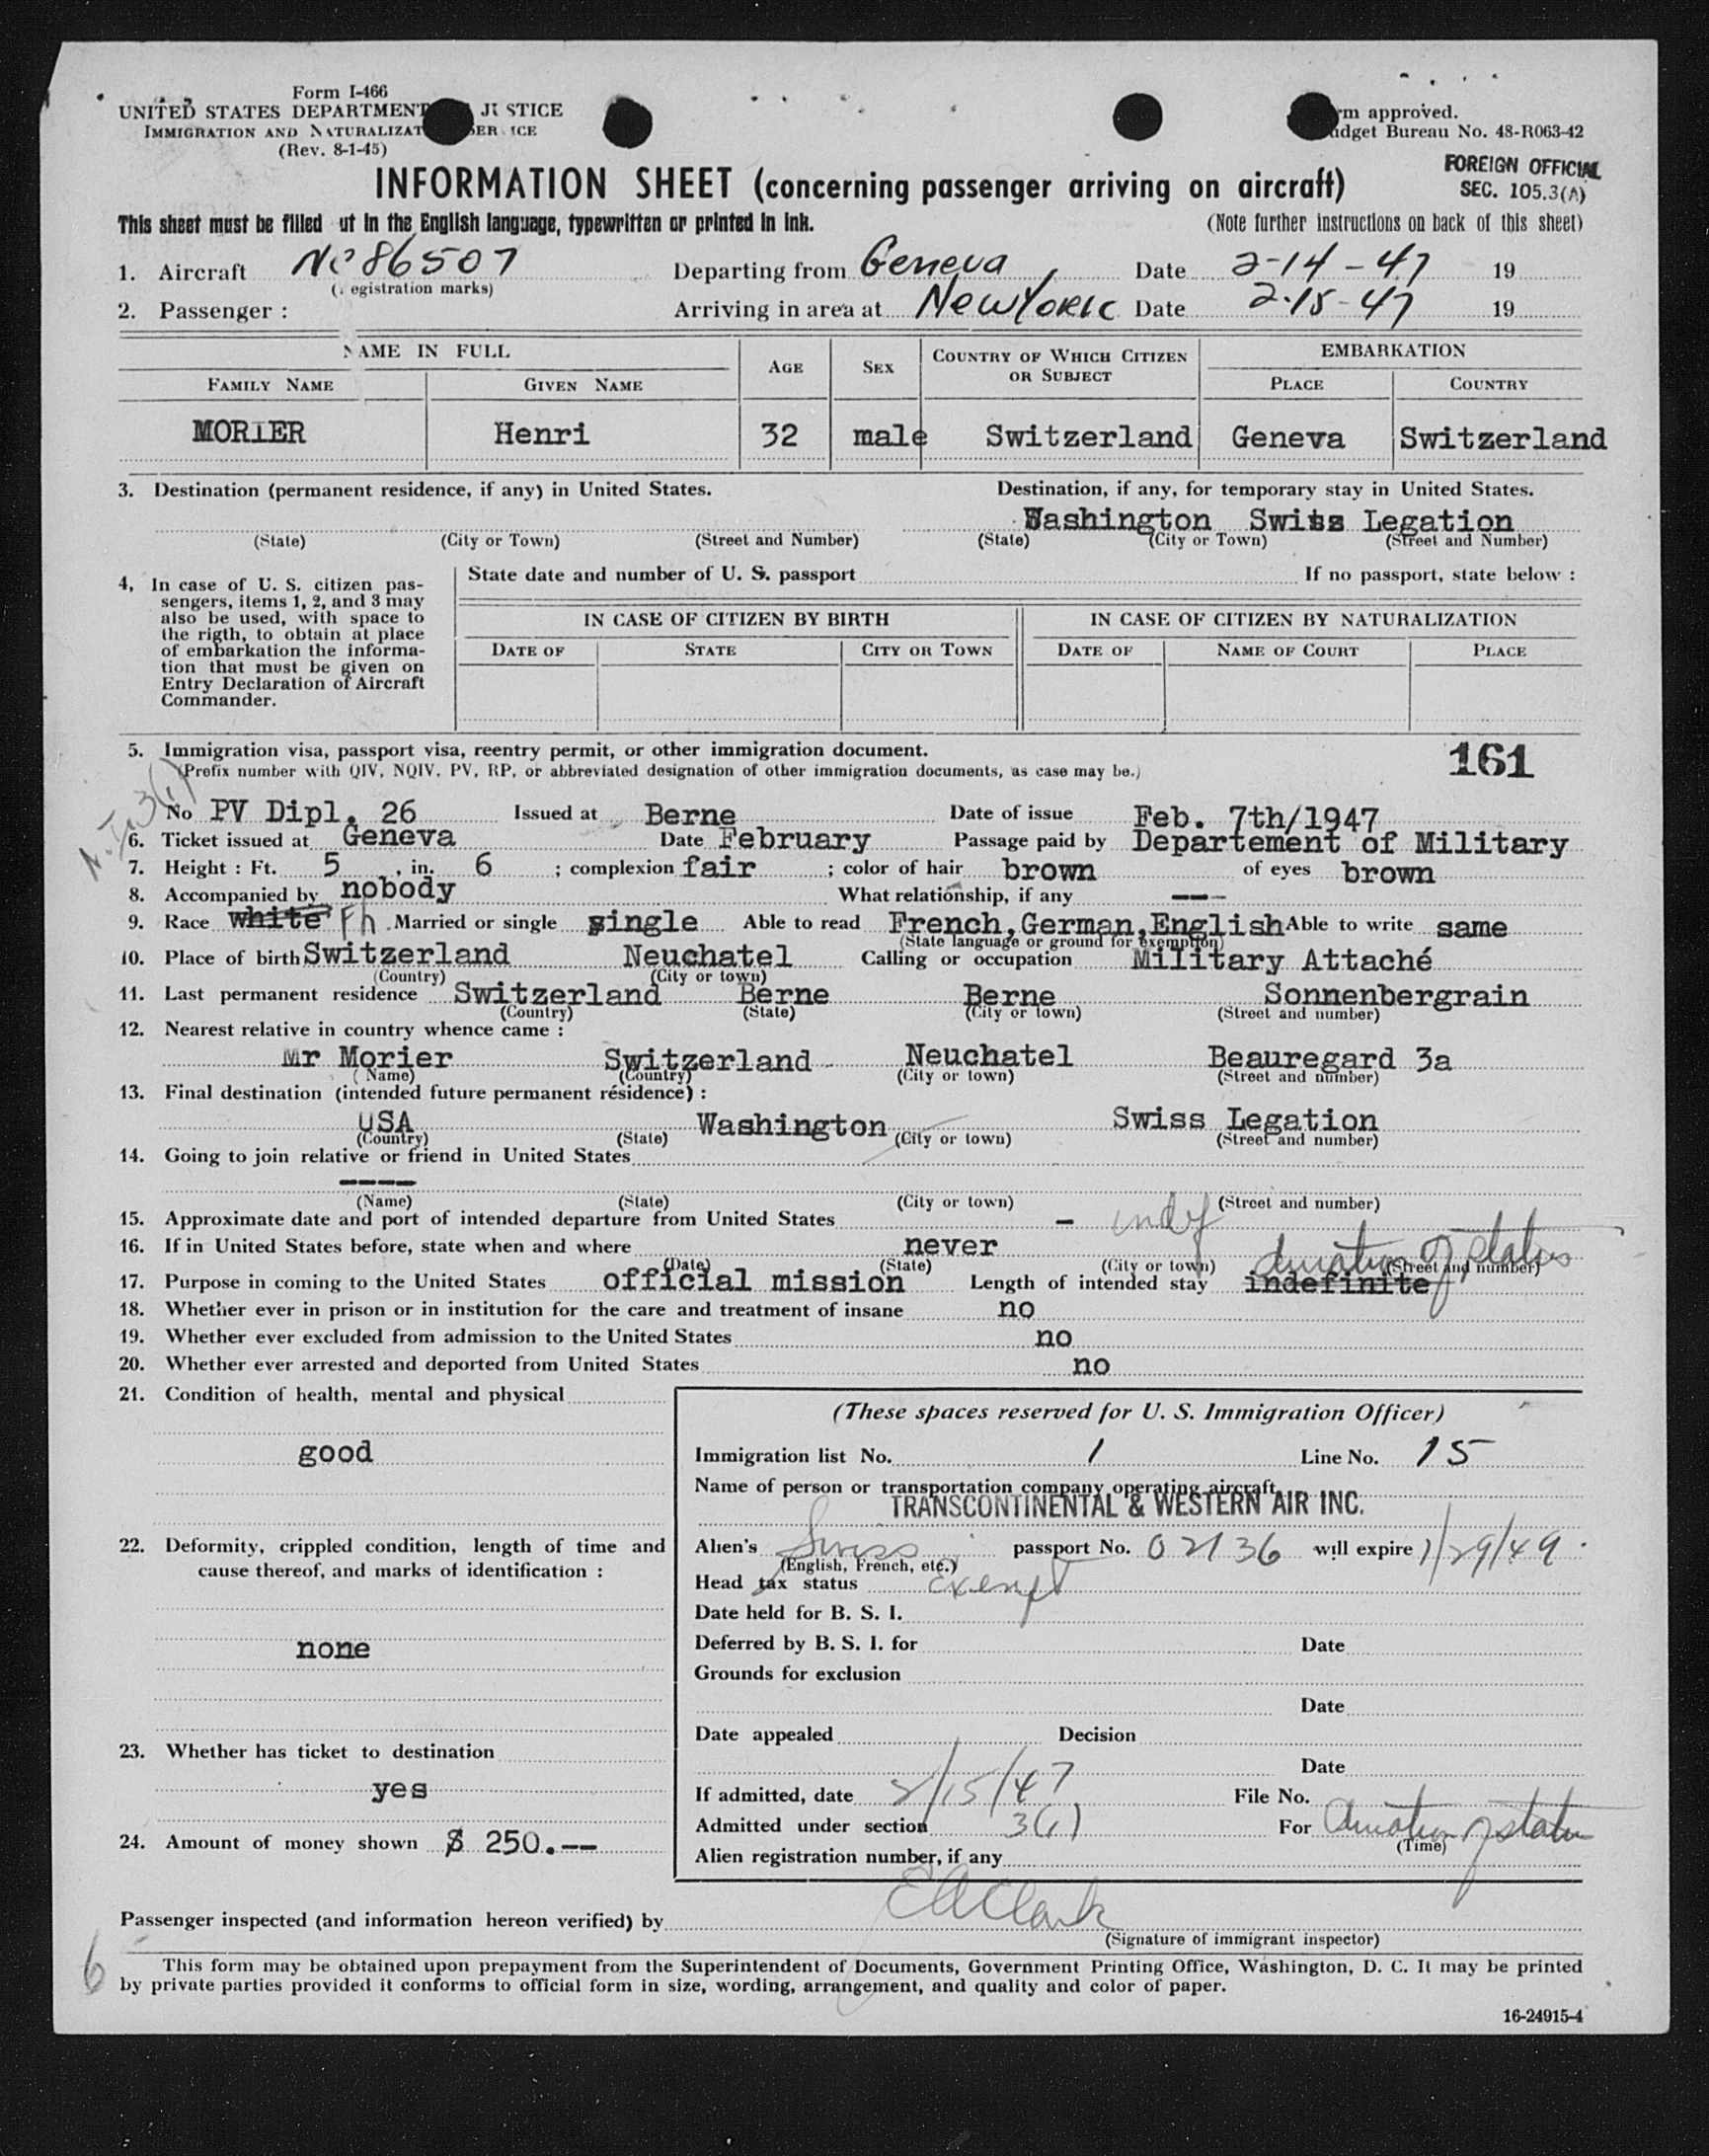 Form I-466
UNITED STATES DEPARTMENT JUSTICE
IMMIGRATION AND NATURALIZAT SERVICE
(Rev. 8-1-45)
rm approved.
udget Bureau No. 48-R063-42
FOREIGN OFFICIAL
SEC. 105.3(A)
INFORMATION SHEET (concerning passenger arriving on aircraft)
This sheet must be filled ut in the English language, typewritten or printed in ink. (Note further instructions on back of this sheet)
1. Aircraft NC 86507 Departing from Geneva, Date 2-14-47 19
(egistration marks)
2. Passenger : Arriving in area at New York Date 2-15-47 19
NAME IN FULL AGE SEX COUNTRY OF WHICH CITIZEN OR SUBJECT EMBARKATION
FAMILY NAME GIVEN NAME PLACE COUNTRY
MORIER Henri 32 male Switzerland Geneva Switzerland
3. Destination (permanent residence, if any) in United States. Destination, if any, for temporary stay in United States.
Washington Swiss Legation
(State) (City or Town) (Street and Number) (State) (City or Town) (Street and Number)
4, In case of U. S. citizen pas-
sengers, items 1, 2, and 3 may
also be used, with space to
the rigth, to obtain at place
of embarkation the informa-
tion that must be given on
Entry Declaration of Aircraft
Commander.
State date and number of U. S. passport If no passport, state below :
IN CASE OF CITIZEN BY BIRTH IN CASE OF CITIZEN BY NATURALIZATION
DATE OF STATE CITY OR TOWN DATE OF NAME OF COURT PLACE
5. Immigration visa, passport visa, reentry permit, or other immigration document. 161
(Prefix number with QIV, NQIV, PV, RP, or abbreviated designation of other immigration documents, as case may be.)
No PV Dipl. 26 Issued at Berne Date of issue Feb. 7th/1947
6. Ticket issued at Geneva Date February Passage paid by Departement of Military
7. Height : Ft. 5 , in. 6 ; complexion fair ; color of hair brown of eyes brown
8. Accompanied by nobody What relationship, if any ---
9. Race white Fh Married or single single Able to read French,German,English Able to write same
(State language or ground for exemption)
10. Place of birth Switzerland Neuchatel Calling or occupation Military Attaché
(Country) (City or town)
11. Last permanent residence Switzerland Berne Berne Sonnenbergrain
(Country) (State) (City or town) (Street and number)
12. Nearest relative in country whence came :
Mr Morier Switzerland Neuchatel Beauregard 3a
(Name) (Country) (City or town) (Street and number)
13. Final destination (intended future permanent résidence) :
USA Washington Swiss Legation
(Country) (State) (City or town) (Street and number)
14. Going to join relative or friend in United States
----
(Name) (State) (City or town) (Street and number)
15. Approximate date and port of intended departure from United States - indef
16. If in United States before, state when and where never
(Date) (State) (City or town) (Street and number)
duration of status
17. Purpose in coming to the United States official mission Length of intended stay indefinite
18. Whether ever in prison or in institution for the care and treatment of insane no
19. Whether ever excluded from admission to the United States no
20. Whether ever arrested and deported from United States no
21. Condition of health, mental and physical
good
22. Deformity, crippled condition, length of time and
cause thereof, and marks of identification :
none
23. Whether has ticket to destination
yes
24. Amount of money shown $ 250.--
(These spaces reserved for U. S. Immigration Officer)
Immigration list No. 1 Line No. 15
Name of person or transportation company operating aircraft
TRANSCONTINENTAL & WESTERN AIR INC.
Alien's Swiss passport No. 02136 will expire 1/29/49
(English, French, etc.)
Head tax status Exempt
Date held for B. S. I.
Deferred by B. S. I. for Date
Grounds for exclusion
Date
Date appealed Decision
Date
If admitted, date 2/15/47 File No.
Admitted under section 3(1) For duration of status
(Time)
Alien registration number, if any
Passenger inspected (and information hereon verified) by EA Clark
(Signature of immigrant inspector)
6
This form may be obtained upon prepayment from the Superintendent of Documents, Government Printing Office, Washington, D. C. It may be printed
by private parties provided it conforms to official form in size, wording, arrangement, and quality and color of paper.
16-24915-4